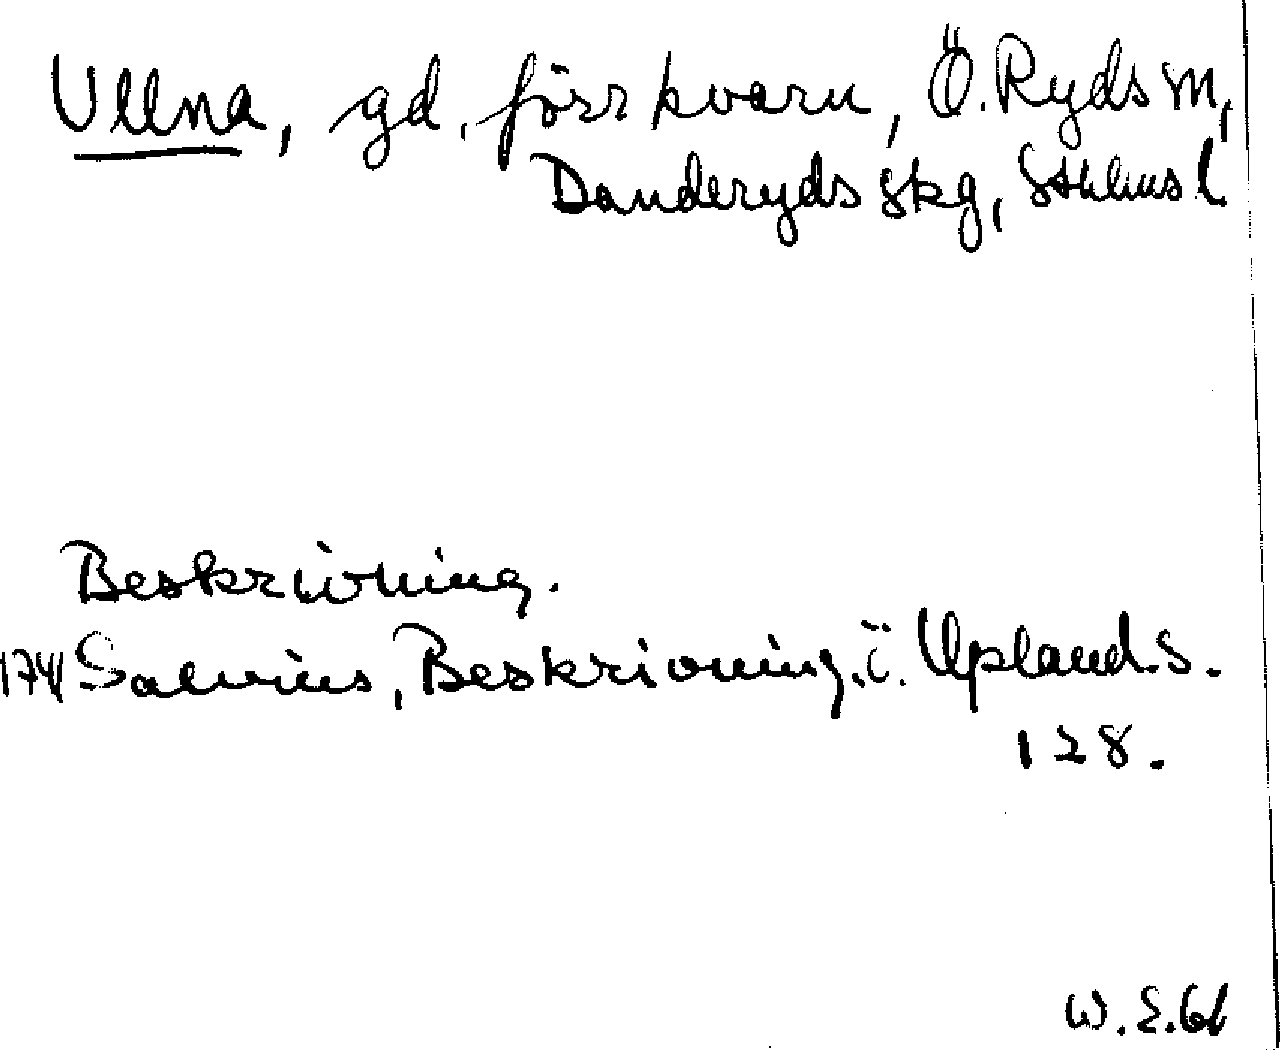 Ullna, gd, förr kvarn, Ö. Ryds sn,
Danderyds skg, Sthlms l.
Beskrivning.
1741 Salvius, Beskrivning. ö. Upland. S.
128.
W. E. 61